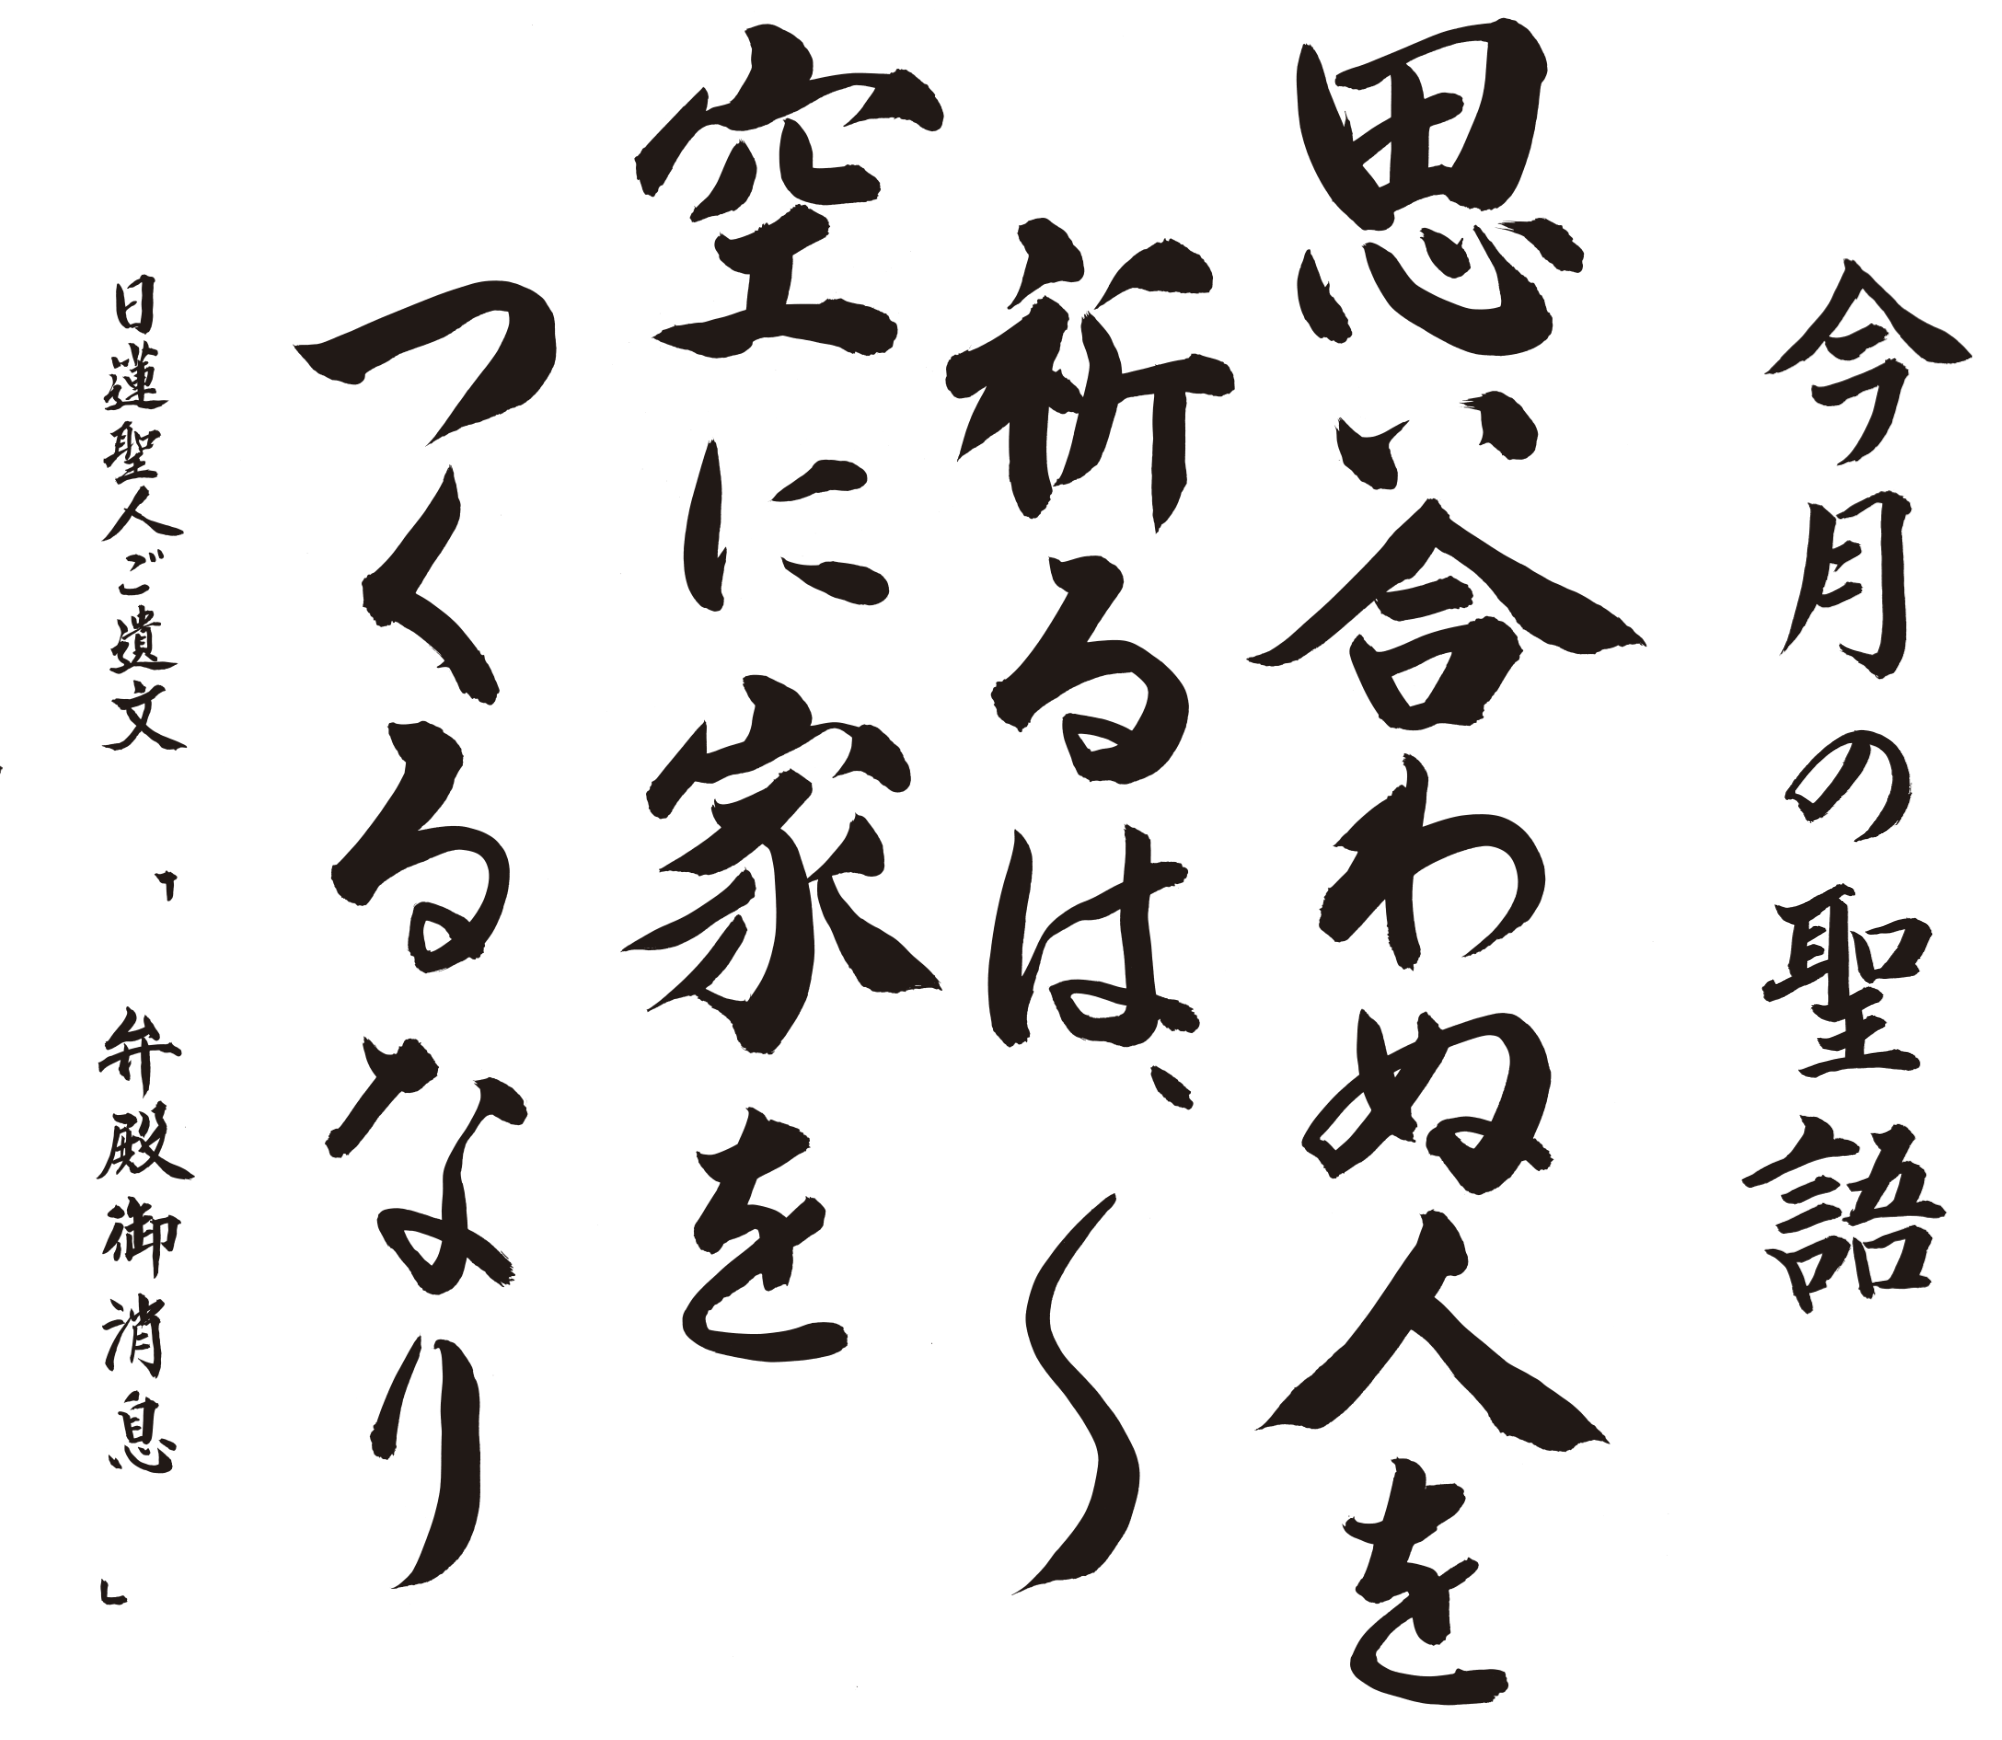 今月の聖語
思い合わぬ人を
祈るは、〜
空に家を
つくるなり
日蓮聖人ご遺文「弁殿御消息」